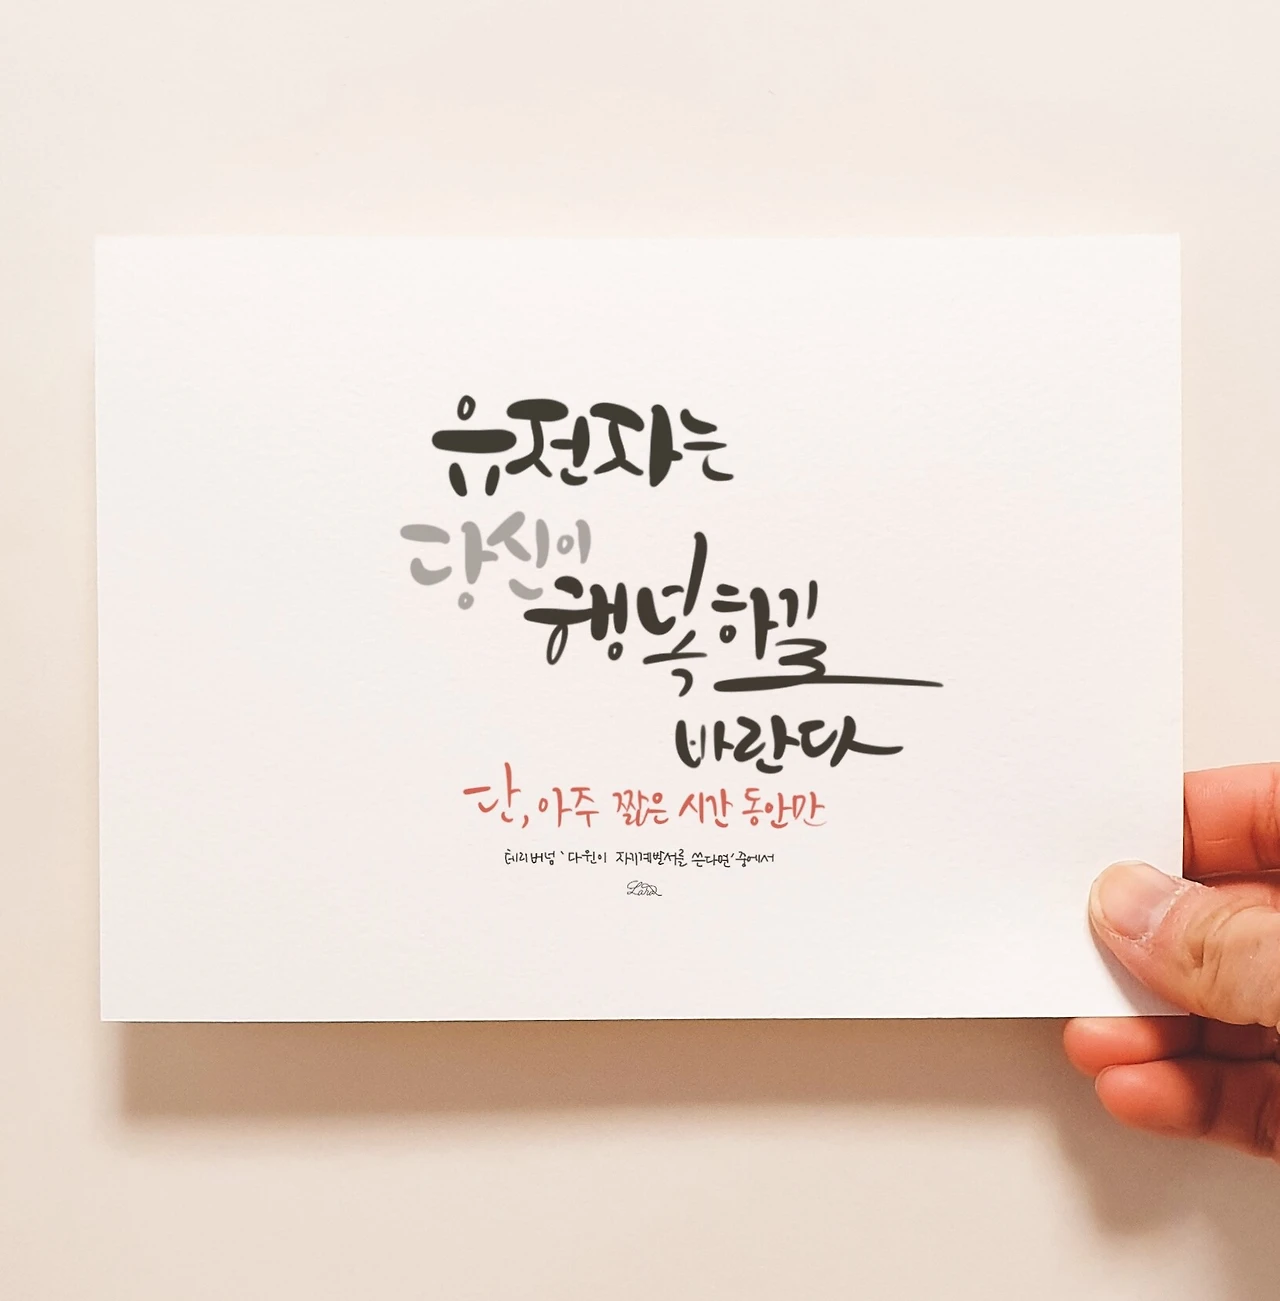 유전자는
당신이
행복하길
바란다
단, 아주 짧은 시간 동안만
테리 버넘 '다윈이 자기계발서를 쓴다면' 중에서
Lara